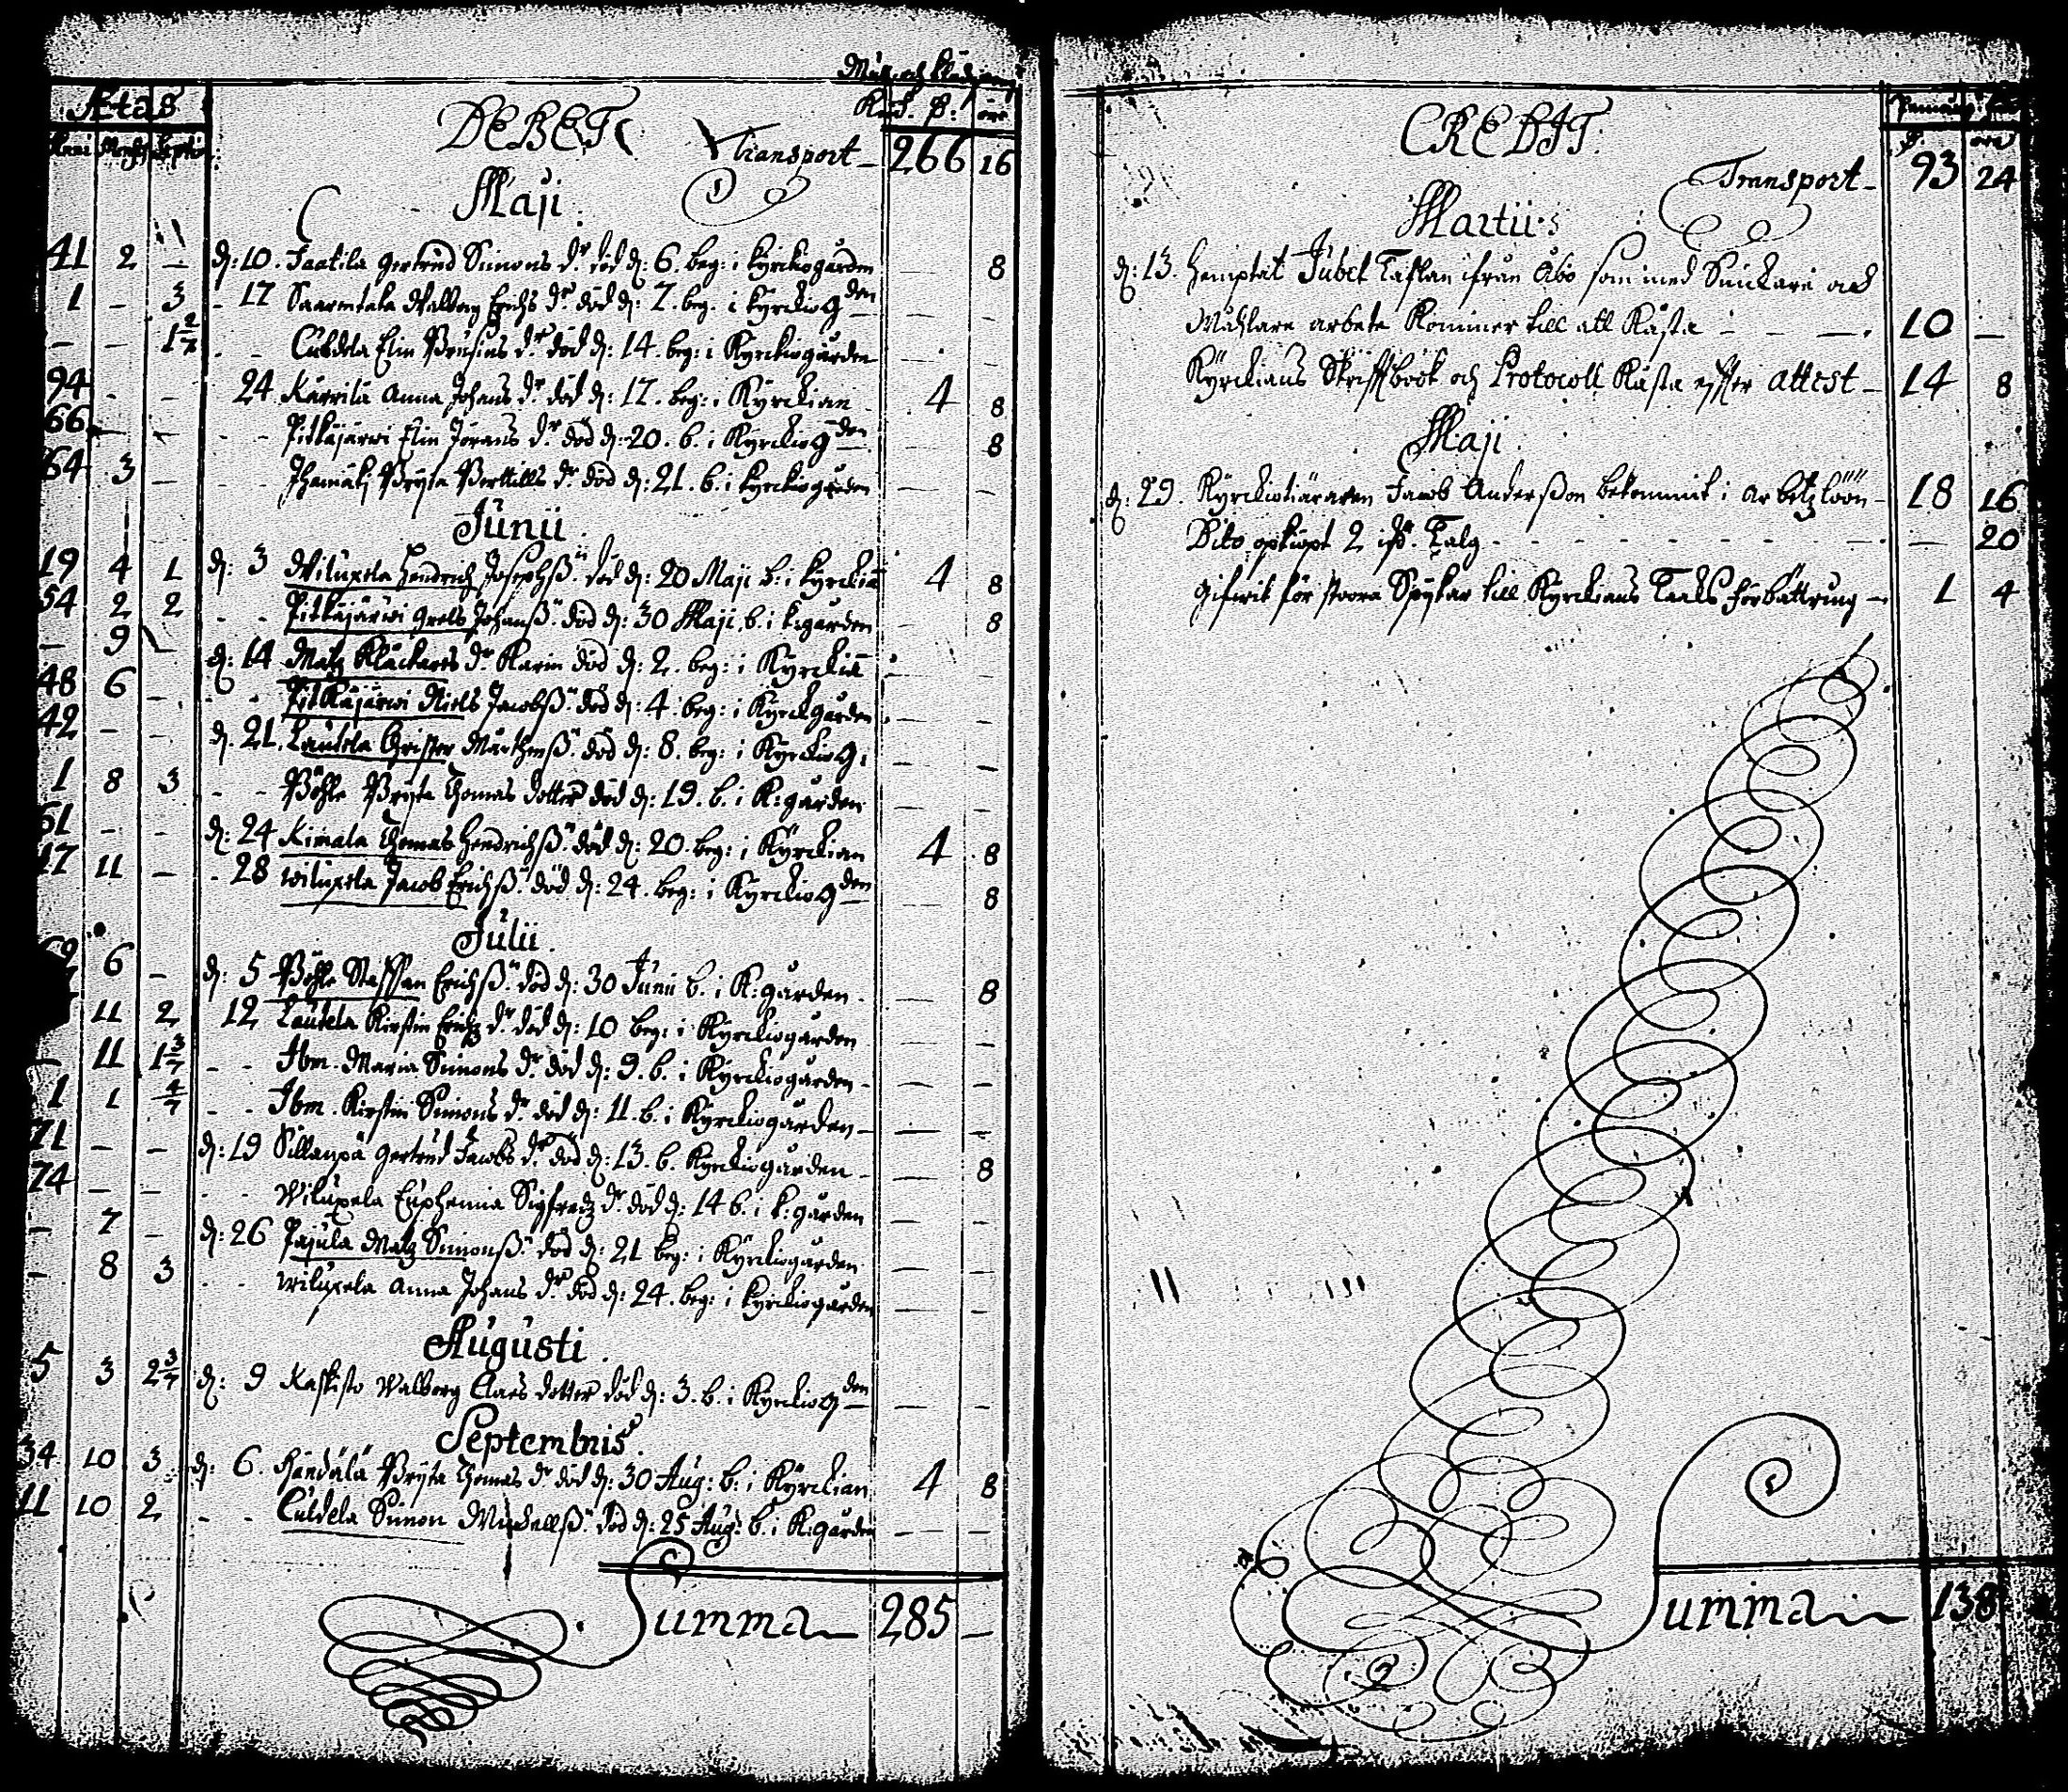 Ætas
DEBET
öre
Transport 266 16
Maji
41 2 — d: 10. Jaakila Gertrud Simons dr. död d: 6. beg: i Kyrkiogården — 8
1 — 3 - 17 Walborg Erichs dr. död d: 7. beg. i Kyrkiogden — —
— — 1 2/7 - - Culdela Elin dr. död d: 14. beg: i Kyrkiogården — —
94 - — 24 Karrila Anna Johans dr. död d: 17. beg: i Kyrckian 4 8
66 — — - - Pitkäjärwi Elin Jörans dr. död d: 20. b. i Kyrkiogden — 8
64 3 — - - Brijta Bertills dr. död d: 21. b. i Kyrkiogården — —
Junii
19 4 1 d: 3 Wiluxela Hendrich Josephß. död d: 20 Maji b: i Kyrckiā 4 8
54 2 2 - - Pitkäjärwi Grels Johanß. död d: 30 Maji b. i K:gården — 8
— 9 — d: 14 Matz dr. Karin död d: 2. beg: i Kyrckiā — —
48 6 — - - Pitkäjärwi Niels Jacobß. död d: 4. beg: i Kyrckgården — —
42 — — d. 21. Lautela Christer död d: 8. beg: i Kyrkiog: — —
1 8 3 - - Böhle Brijta Thomas dotter död d: 19. b. i K:gården — —
61 - - d: 24 Kimala Thomas Hendrichß. död d: 20. beg: i Kyrckian 4 8
17 11 — - 28 Wiluxela Jacob Erichß. död d: 24. beg: i Kyrkiogden — 8
Julii
69 6 — d: 5 Böhle Staffan Erichß. död d: 30 Junii b. i K:gården — 8
11 2 12 Lautela Kirstin dr. död d: 10 beg: i Kyrkiogården — —
— 11 1 3/7 - - Ibm. Maria Simons dr. död d: 9. b. i Kyrkiogården — —
1 1 4/7 - - Ibm. Kirstin Simons dr. död d: 11. b. i Kyrkiogården — —
71 — — d: 19 Sillanpä Gertrud Jacobs dr. död d: 13. b. Kyrkiogården — 8
74 — — - - Wiluxela Euphemia Sigfredz dr. död d: 14 b. i K:gården — —
— 7 — d: 26 Pajula Matz Simonß. död d: 21 beg: i Kyrkiogården — —
— 8 3 - - Wiluxela Anna Johans dr. död d: 24. beg: i Kyrkiogården — —
Augusti
5 3 2 3/7 d: 9 Kaskisto Walborg Claes dotter död d: 3. b. i Kyrkiogden — —
Septembris
34 10 3 d: 6. Händälä Brijta Thomas dr. död d: 30 Aug: b: i Kyrckian 4 8
11 10 2 - - Culdela Simon Michellß. död d: 25 Aug: b. i K:gården — —
Summa 285 —
CREDIT
öre
Transport 93 24
Martii
d: 13. Hemptat Jubel Taflan ifrån Åbo som med Snickare och
Måhlare arbete Kommer till att Kåsta — 10 —
Kyrckians Skrifftbook och Protocoll Kåsta effter attest — 14 8
Maji
d: 29. Jacob Anderßon bekommit i arbetzlöön — 18 16
Dito opkiöpt 2 Talg — — 20
Gifwit för stoora Spijkar till Kyrckians Taaks förbättring — 1 4
Summa 138